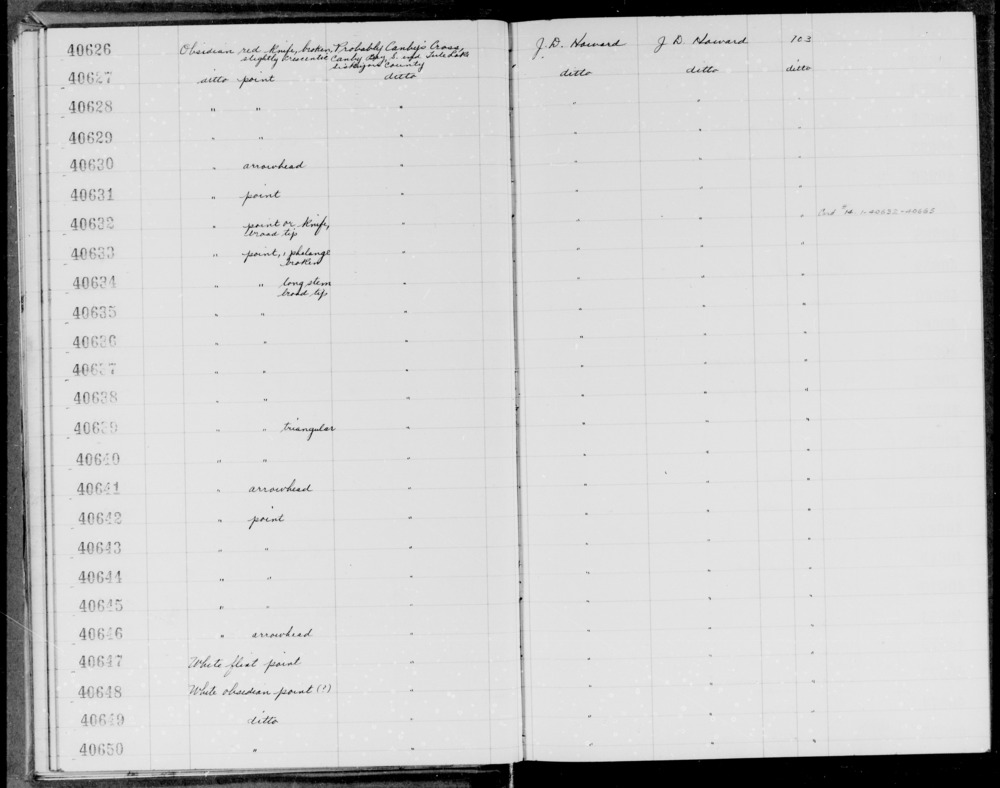 40626 Obsidian red knife, broken, Probably Canby's Cross, J. D. Howard J D Howard 103
slightly crescentic Canby Bay, S. end Tule Lake
Siskiyou County
40627 ditto point ditto ditto ditto ditto
40628 " " " " " "
40629 " " " " " "
40630 " arrowhead " " " "
40631 " point " " " "
40632 " point or knife, " " " " Cord # 14
broad tip
40633 " point, 1 phalange " " " "
broken
40634 " " long stem " " " "
broad tip
40635 " " " " " "
40636 " " " " " "
40637 " " " " " "
40638 " " " " " "
40639 " " triangular " " " "
40640 " " " " " "
40641 " arrowhead " " " "
40642 " point " " " "
40643 " " " " " "
40644 " " " " " "
40645 " " " " " "
40646 " arrowhead " " " "
40647 White flint point " " " "
40648 White obsidian point (?) " " " "
40649 ditto " " " "
40650 " " " " "